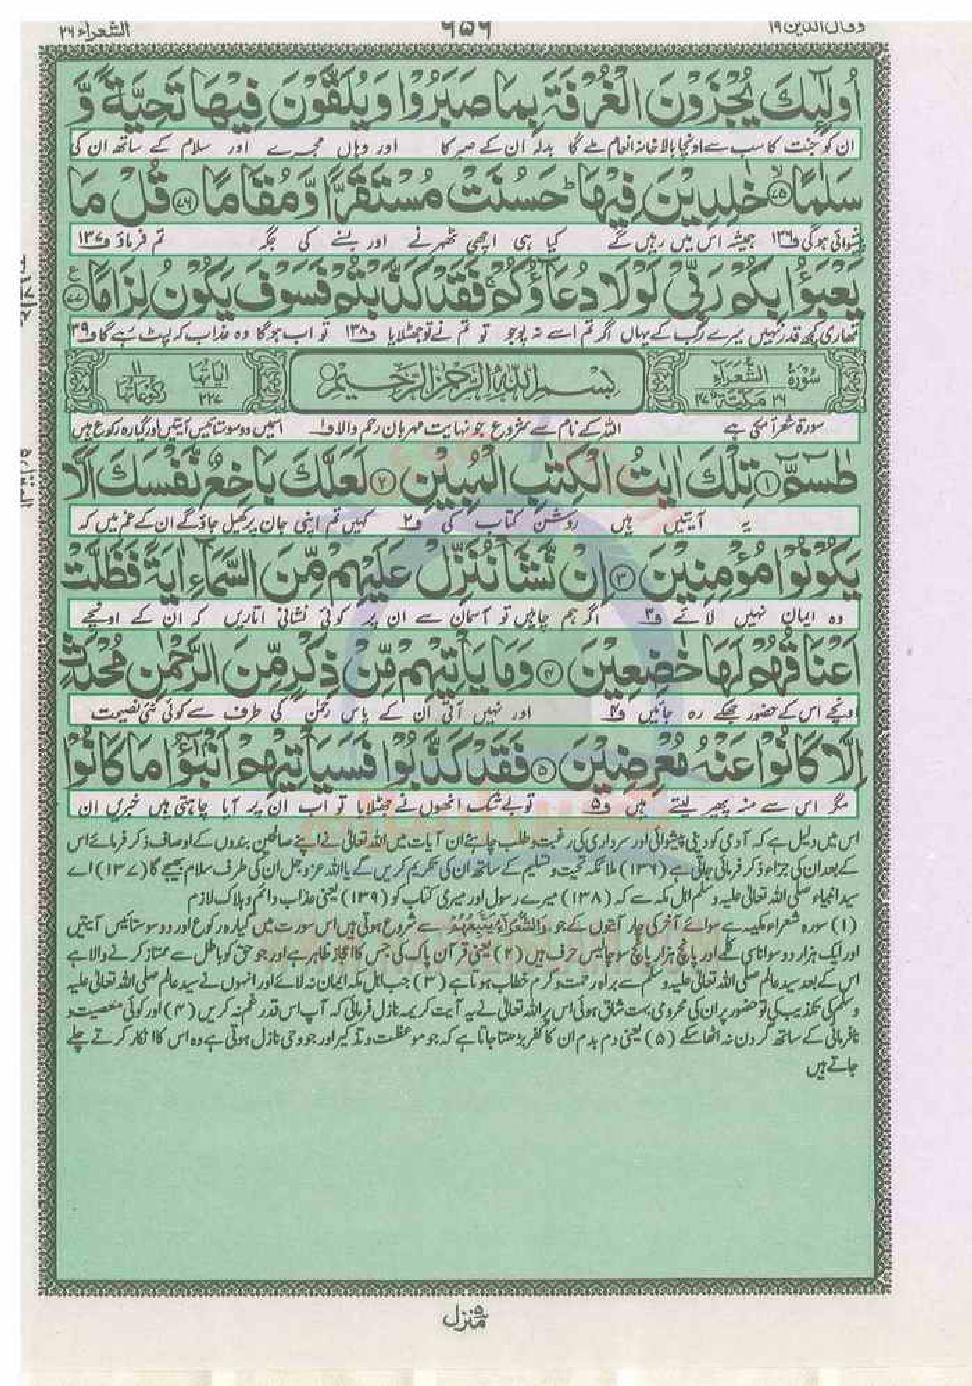 وقال الذین ۱۹
۶۵۶
الشعراء ۲۶
اُولٰٓئِكَ یُجْزَوْنَ الْغُرْفَةَ بِمَا صَبَرُوْا وَ یُلَقَّوْنَ فِیْهَا تَحِیَّةً وَّ
ان کو جنت کا سب سے اونچا بالا خانہ انعام ملے گا بدلہ ان کے صبر کا اور وہاں مجرے اور سلام کے ساتھ ان کی
سَلٰمًا ﴿۷۵﴾ خٰلِدِیْنَ فِیْهَا ؕ حَسُنَتْ مُسْتَقَرًّا وَّ مُقَامًا ﴿۷۶﴾ قُلْ مَا
پیشوائی ہوگی ف۱۳۶ ہمیشہ اس میں رہیں گے کیا ہی اچھی ٹھہرنے اور بسنے کی جگہ تم فرماؤ ف۱۳۷
یَعْبَؤُا بِكُمْ رَبِّیْ لَوْ لَا دُعَآؤُكُمْ ۚ فَقَدْ كَذَّبْتُمْ فَسَوْفَ یَكُوْنُ لِزَامًا ﴿۷۷﴾
تمہاری کچھ قدر نہیں میرے رب کے یہاں اگر تم اسے نہ پوجو تو تم نے تو جھٹلایا ف۱۳۸ تو اب ہوگا وہ عذاب کہ لپٹ رہے گا ف۱۳۹
سُوْرَةُ الشُّعَرَآءِ ۲۶ مَكِّیَّةٌ ۴۷
بِسْمِ اللّٰهِ الرَّحْمٰنِ الرَّحِیْمِ
اٰیاتها ۲۲۷
۱۱ ركوعاتها
سورۃ شعرآ مکی ہے اللہ کے نام سے شروع جو نہایت مہربان رحم والا ف۱ اسمیں دو سو ستائیس آیتیں اور گیارہ رکوع ہیں
طٰسٓمّٓ ﴿۱﴾ تِلْكَ اٰیٰتُ الْكِتٰبِ الْمُبِیْنِ ﴿۲﴾ لَعَلَّكَ بَاخِعٌ نَّفْسَكَ اَلَّا
یہ آیتیں ہیں روشن کتاب کی ف۲ کہیں تم اپنی جان پر کھیل جاؤ گے ان کے غم میں کہ
یَكُوْنُوْا مُؤْمِنِیْنَ ﴿۳﴾ اِنْ نَّشَاْ نُنَزِّلْ عَلَیْهِمْ مِّنَ السَّمَآءِ اٰیَةً فَظَلَّتْ
وہ ایمان نہیں لائے ف۳ اگر ہم چاہیں تو آسمان سے ان پر کوئی نشانی اتاریں کہ ان کے اونچے
اَعْنَاقُهُمْ لَهَا خٰضِعِیْنَ ﴿۴﴾ وَ مَا یَاْتِیْهِمْ مِّنْ ذِكْرٍ مِّنَ الرَّحْمٰنِ مُحْدَثٍ
اونچے اس کے حضور جھکے رہ جائیں ف۴ اور نہیں آتی ان کے پاس رحمٰن کی طرف سے کوئی نئی نصیحت
اِلَّا كَانُوْا عَنْهُ مُعْرِضِیْنَ ﴿۵﴾ فَقَدْ كَذَّبُوْا فَسَیَاْتِیْهِمْ اَنْۢبٰٓؤُا مَا كَانُوْا
مگر اس سے منہ پھیر لیتے ہیں ف۵ تو بے شک انھوں نے جھٹلایا تو اب ان پر آیا چاہتی ہیں خبریں ان
اس میں دلیل ہے کہ آدمی کو دینی پیشوائی اور سرداری کی رغبت و طلب چاہئے ان آیات میں اللہ تعالیٰ نے اپنے صالحین بندوں کے اوصاف ذکر فرمائے اس
کے بعد ان کی جزاء ذکر فرمائی جاتی ہے (۱۳۶) ملائکہ تحیت و تسلیم کے ساتھ ان کی تکریم کریں گے یا اللہ عزوجل ان کی طرف سلام بھیجے گا (۱۳۷) اے
سید انبیاء صلی اللہ تعالیٰ علیہ وسلم اہل مکہ سے کہ (۱۳۸) میرے رسول اور میری کتاب کو (۱۳۹) یعنی عذاب دائم و ہلاک لازم
(۱) سورہ شعراء مکیہ ہے سوائے آخر کی چار آیتوں کے جو وَالشُّعَرَآءُ یَتَّبِعُهُمُ سے شروع ہوتی ہیں اس سورت میں گیارہ رکوع اور دو سو ستائیس آیتیں
اور ایک ہزار دو سو اناسی کلمے اور پانچ ہزار پانچ سو چالیس حرف ہیں (۲) یعنی قرآن پاک کی جس کا اعجاز ظاہر ہے اور جو حق کو باطل سے ممتاز کرنے والا ہے
اس کے بعد سید عالم صلی اللہ تعالیٰ علیہ وسلم سے براہ رحمت و کرم خطاب ہوتا ہے (۳) جب اہل مکہ ایمان نہ لائے اور انہوں نے سید عالم صلی اللہ تعالیٰ علیہ
وسلم کی تکذیب کی تو حضور پر ان کی محرومی بہت شاق ہوئی اس پر اللہ تعالیٰ نے یہ آیت کریمہ نازل فرمائی کہ آپ اس قدر غم نہ کریں (۴) اور کوئی معصیت و
نافرمانی کے ساتھ گردن نہ اٹھا سکے (۵) یعنی دم بدم ان کا کفر بڑھتا جاتا ہے کہ جو موعظت و تذکیر اور جو وحی نازل ہوتی ہے وہ اس کا انکار کرتے چلے
جاتے ہیں
منزل ۵